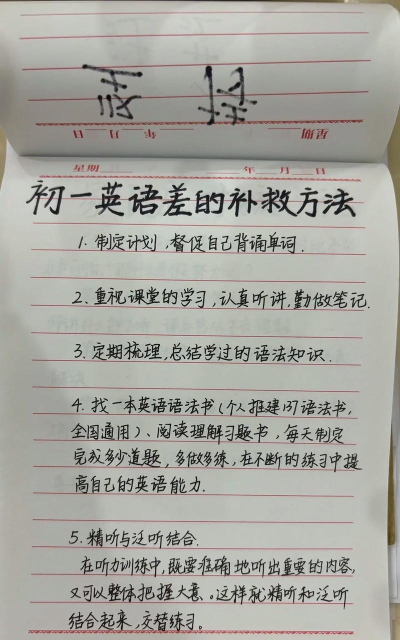 星期
年 月 日
星期
年 月 日
初一英语差的补救方法
1. 制定计划,督促自己背诵单词.
2. 重视课堂的学习,认真听讲,勤做笔记.
3. 定期梳理,总结学过的语法知识.
4. 找一本英语语法书(个人推建137语法书,
全国通用)、阅读理解习题书,每天制定
完成多少道题,多做多练,在不断的练习中提
高自己的英语能力.
5. 精听与泛听结合.
在听力训练中,既要准确地听出重要的内容,
又可以整体把握大意。这样就精听和泛听
结合起来,交替练习。